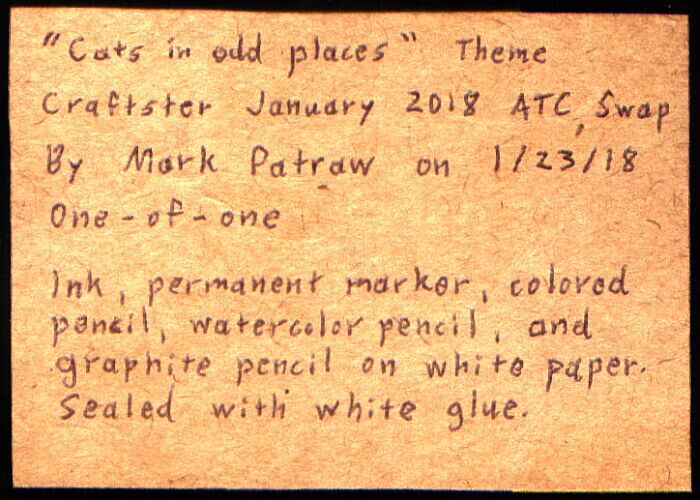 "Cats in odd places" Theme
Craftster January 2018 ATC Swap
By Mark Patraw on 1/23/18
One-of-one
Ink, permanent marker, colored
pencil, watercolor pencil, and
graphite pencil on white paper.
Sealed with white glue.